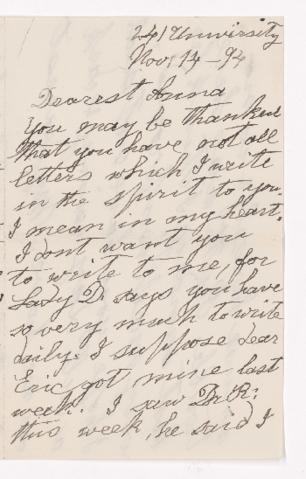 241 University
Nov 14 - 94
Dearest Anna
You may be thankful
that you have not all
letters which I write
in the spirit to you.
I mean in my heart.
I dont want you
to write to me, for
Lady D. says you have
so very much to write
daily. I suppose dear
Eric got mine last
week. I saw Dr. R:
this week, he said I